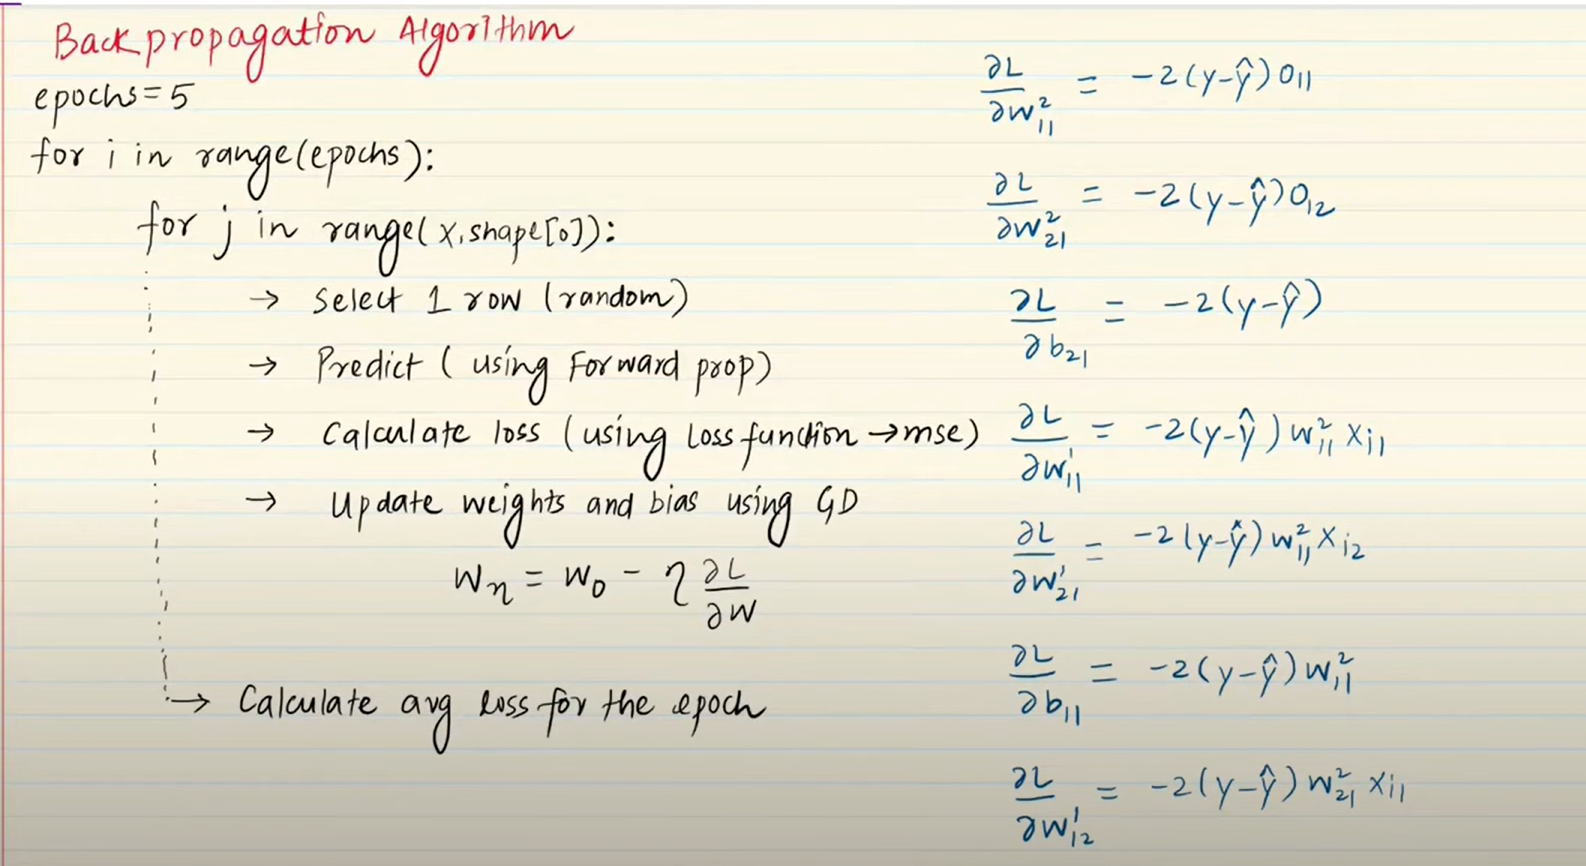 Backpropagation Algorithm
epochs = 5
for i in range(epochs):
for j in range(x.shape[0]):
→ Select 1 row (random)
→ Predict (using Forward prop)
→ Calculate loss (using Loss function → mse)
→ Update weights and bias using GD
Wₙ = W₀ - η ∂L/∂W
→ Calculate avg loss for the epoch
∂L/∂w²₁₁ = -2(y-ŷ)O₁₁
∂L/∂w²₂₁ = -2(y-ŷ)O₁₂
∂L/∂b₂₁ = -2(y-ŷ)
∂L/∂w¹₁₁ = -2(y-ŷ)w²₁₁ xᵢ₁
∂L/∂w¹₂₁ = -2(y-ŷ)w²₁₁ xᵢ₂
∂L/∂b₁₁ = -2(y-ŷ)w²₁₁
∂L/∂w¹₁₂ = -2(y-ŷ)w²₂₁ xᵢ₁